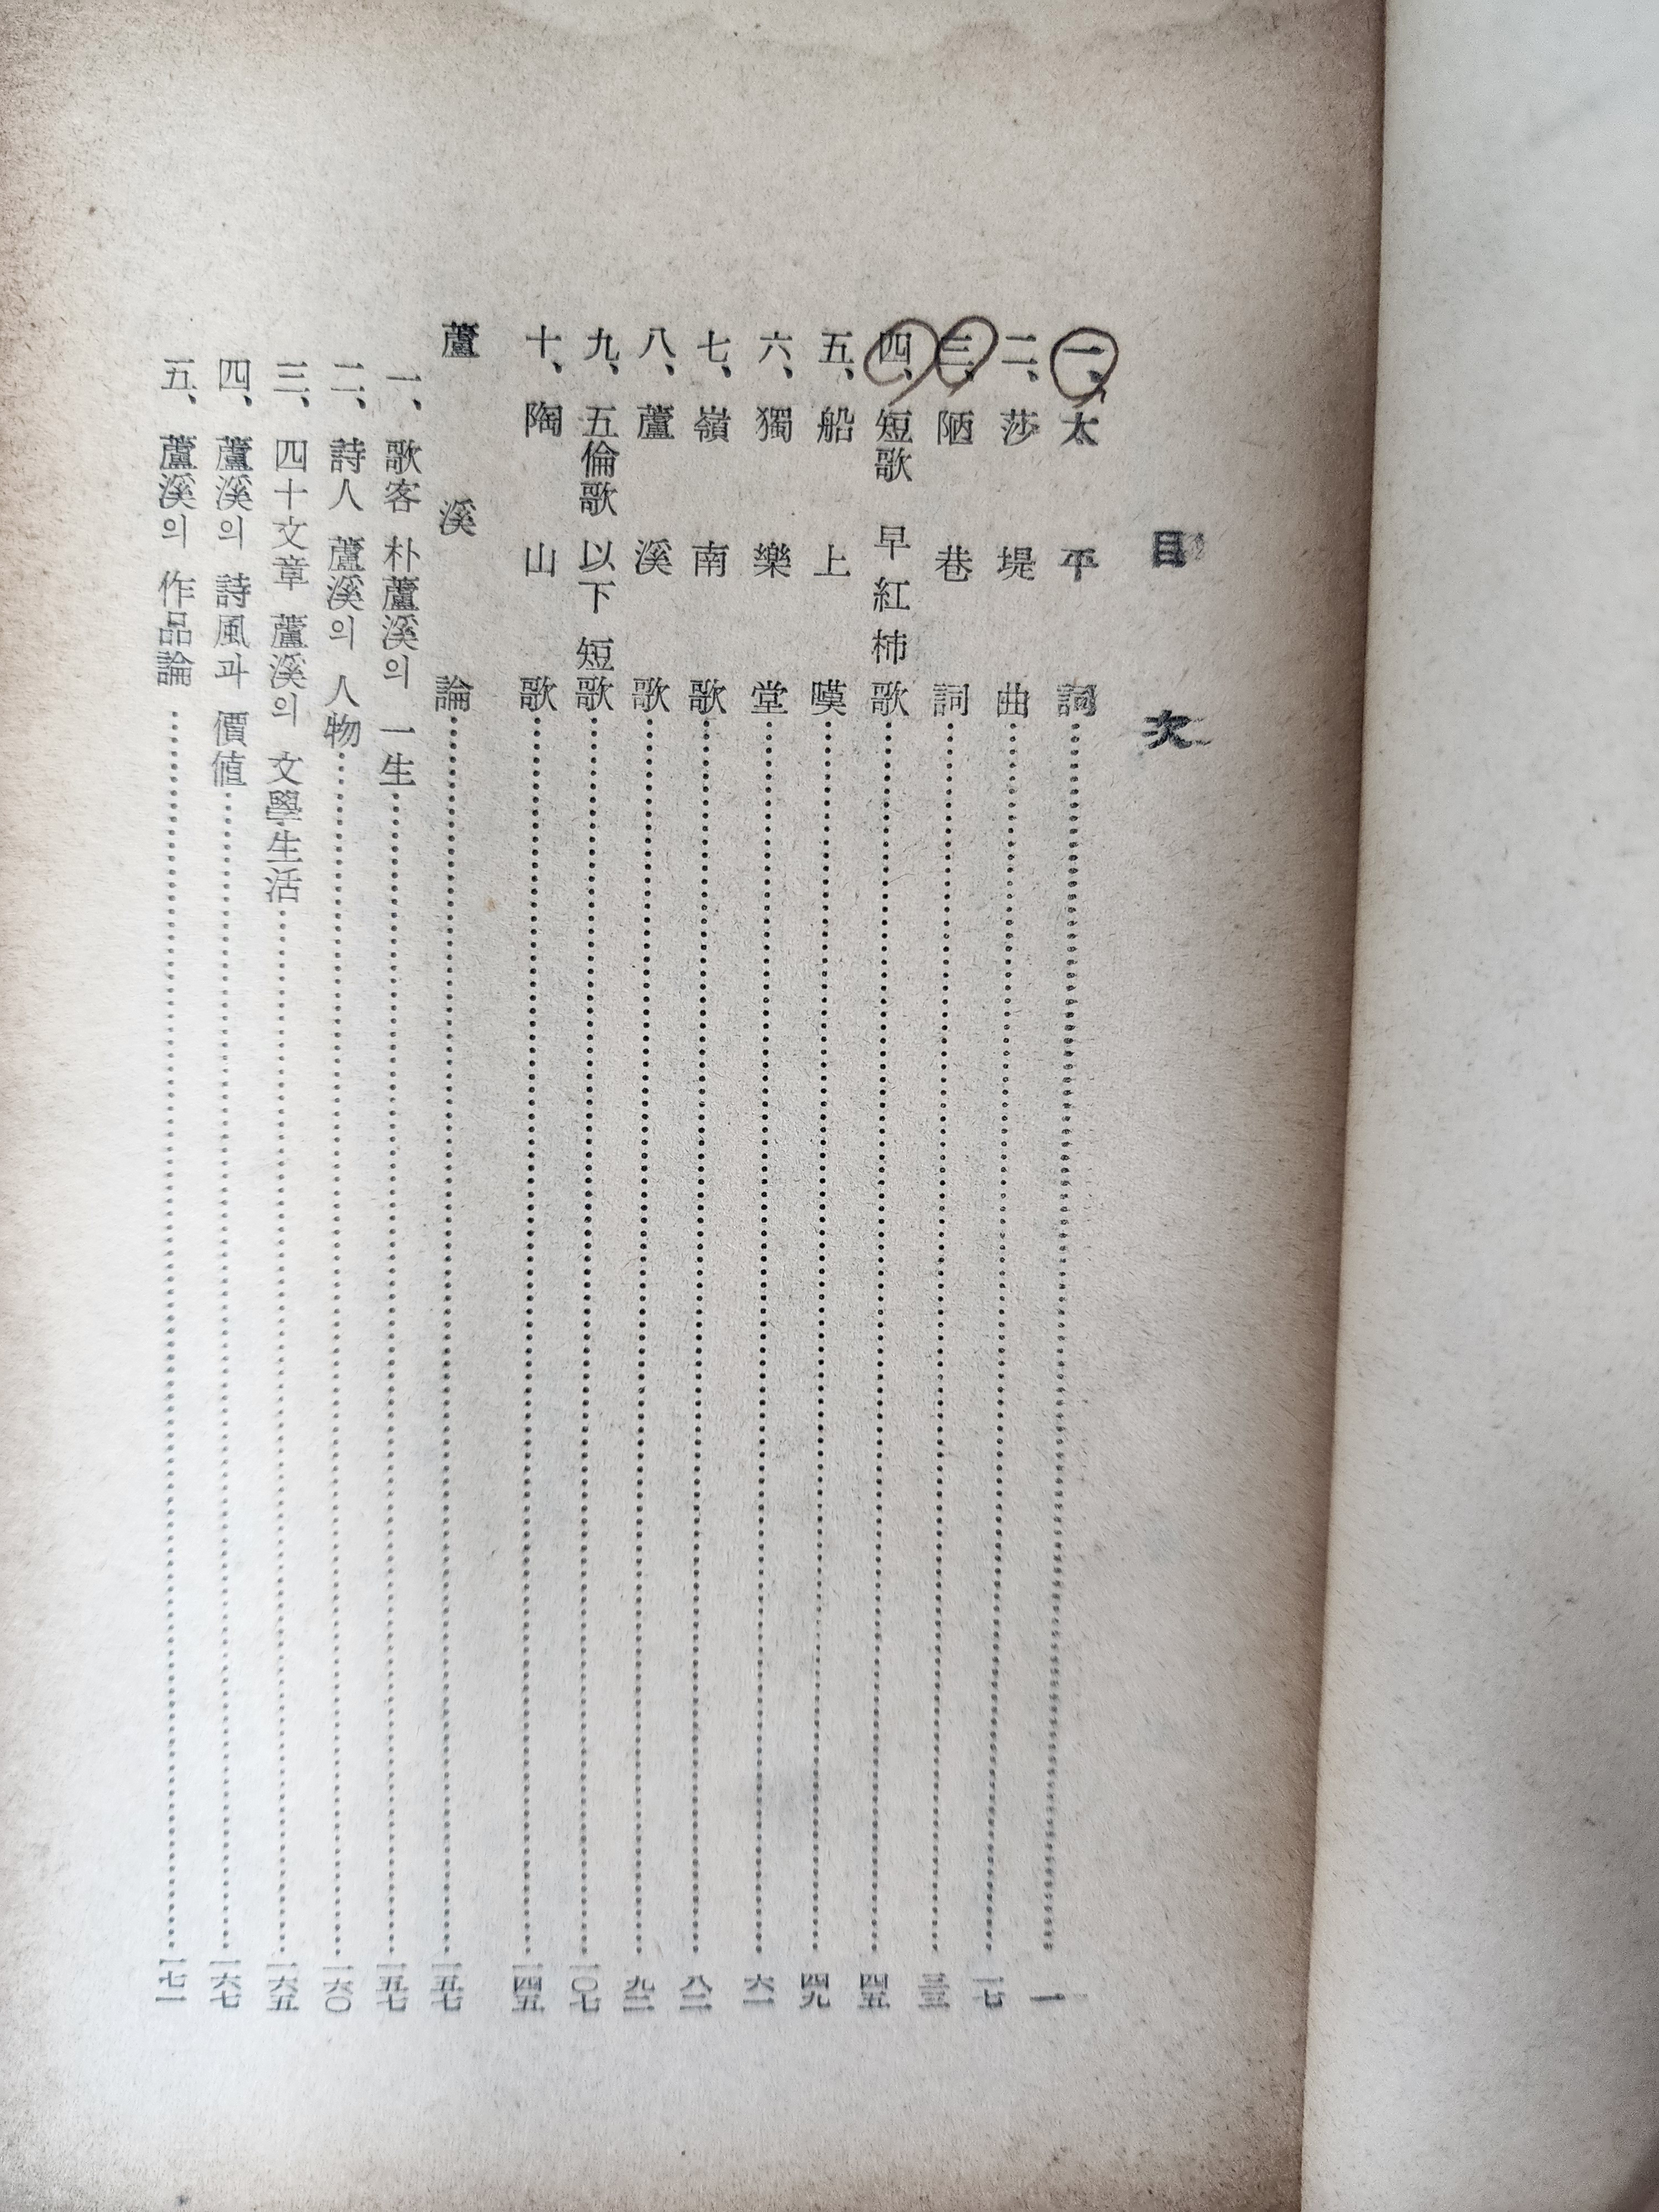 目次
一、太平詞 一
二、莎堤曲 一七
三、陋巷詞 三三
四、短歌 早紅柿歌 四五
五、船上嘆 四九
六、獨樂堂 六一
七、嶺南歌 八一
八、蘆溪歌 九三
九、五倫歌 以下 短歌 一〇七
十、陶山歌 一四五
蘆溪論 一五七
一、歌客 朴蘆溪의 一生 一五七
二、詩人 蘆溪의 人物 一六〇
三、四十文章 蘆溪의 文學生活 一六五
四、蘆溪의 詩風과 價値 一六七
五、蘆溪의 作品論 一七一